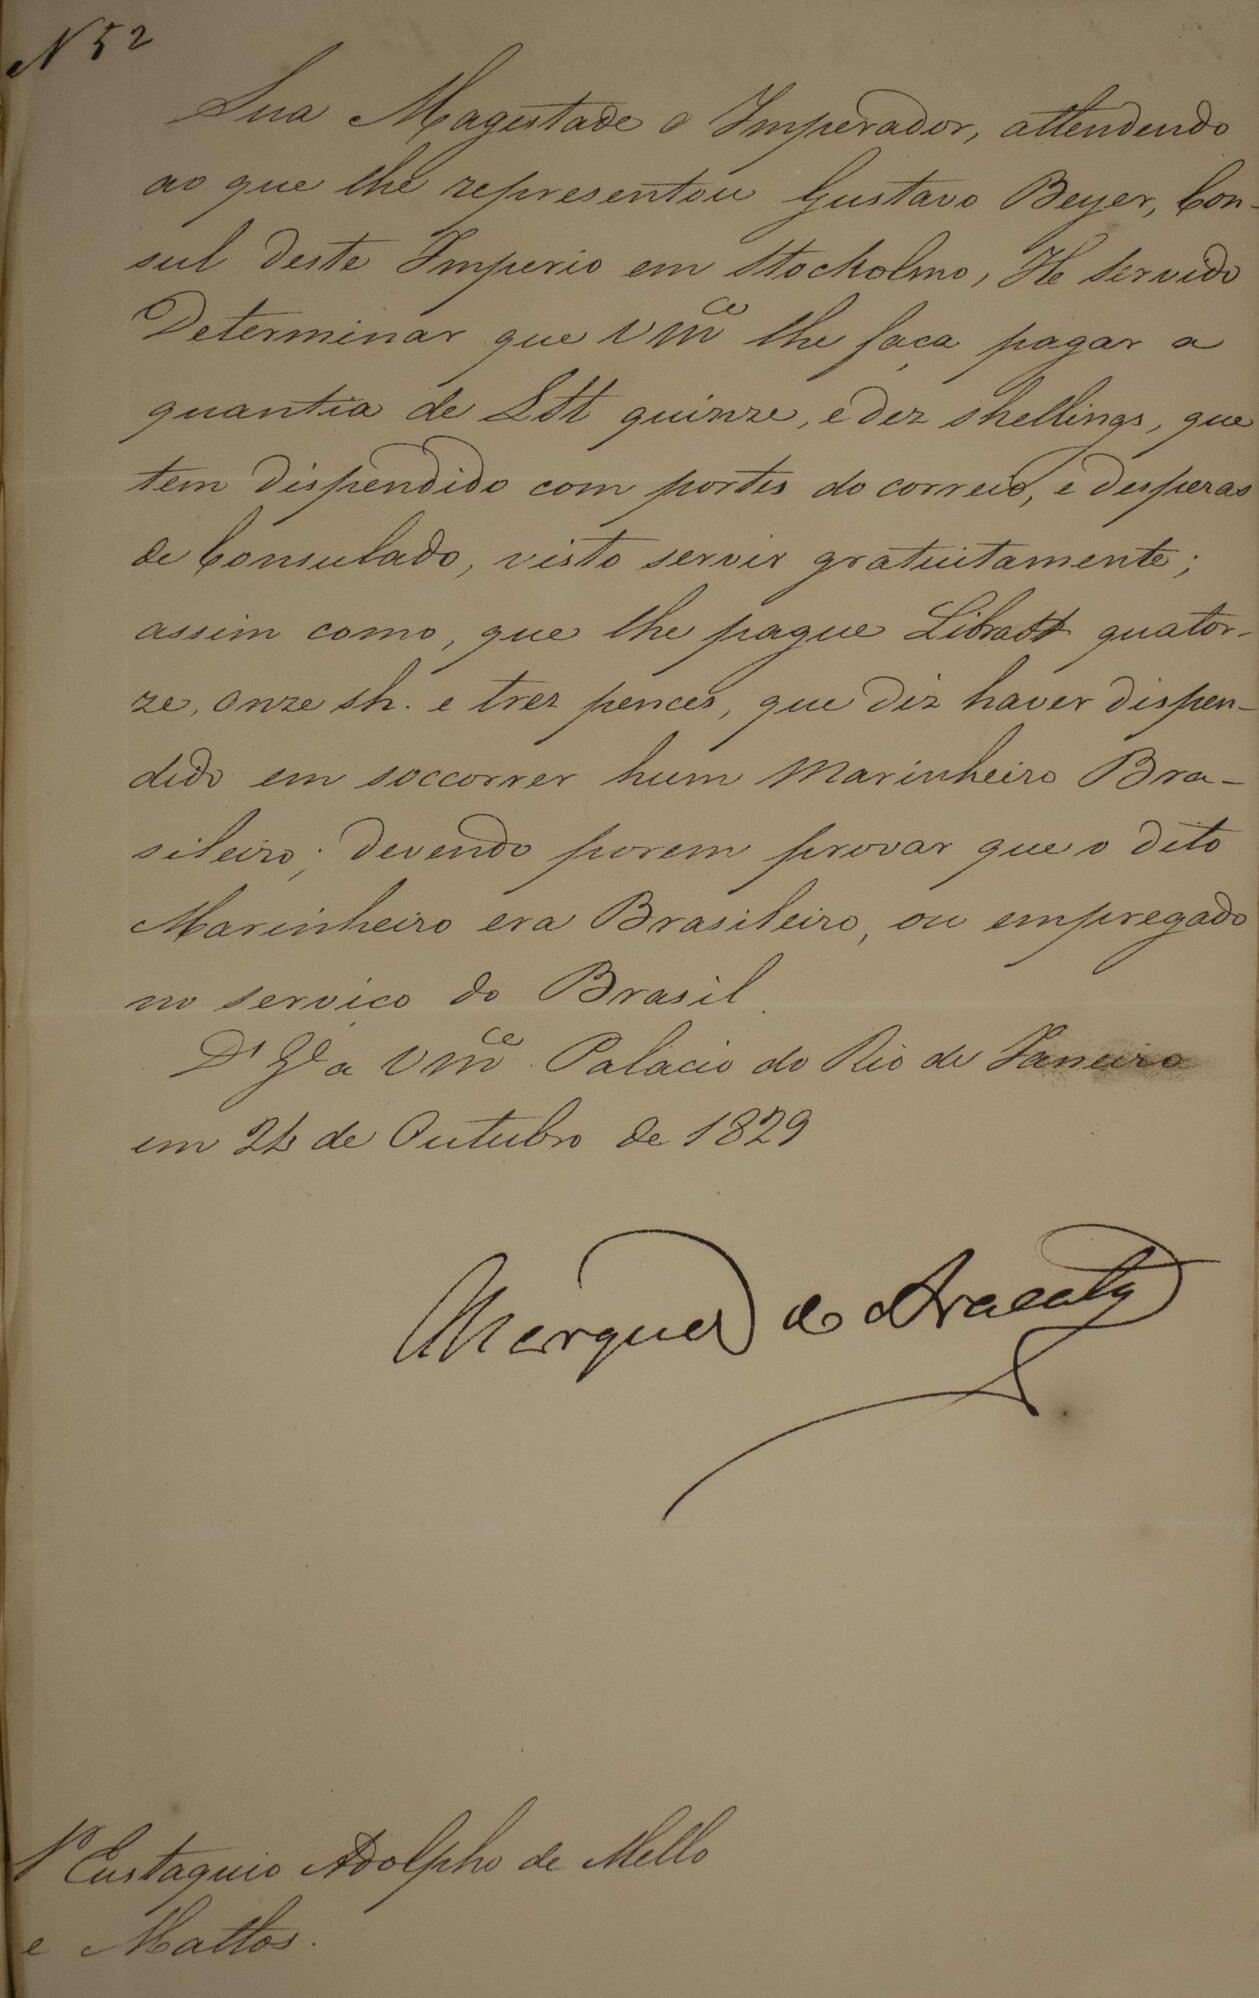 N 52
Sua Magestade o Imperador, attendendo
ao que lhe representou Gustavo Beyer, Con-
sul deste Imperio em Stockolmo, He servido
Determinar que Vm.ce lhe faça pagar a
quantia de Lstt quinze, e dez shellings, que
tem dispendido com portes do correio, e despezas
de Consulado, visto servir gratuitamente;
assim como, que lhe pague Librastt quator-
ze, onze sh. e trez pences, que diz haver dispen-
dido em soccorrer hum Marinheiro Bra-
sileiro; devendo porem provar que o dito
Marinheiro era Brasileiro, ou empregado
no serviço do Brasil.
Ds Ge a Vm.ce Palacio do Rio de Janeiro
em 24 de Outubro de 1829
Marquez de Aracaty
Sr Eustaquio Adolpho de Mello
e Mattos.